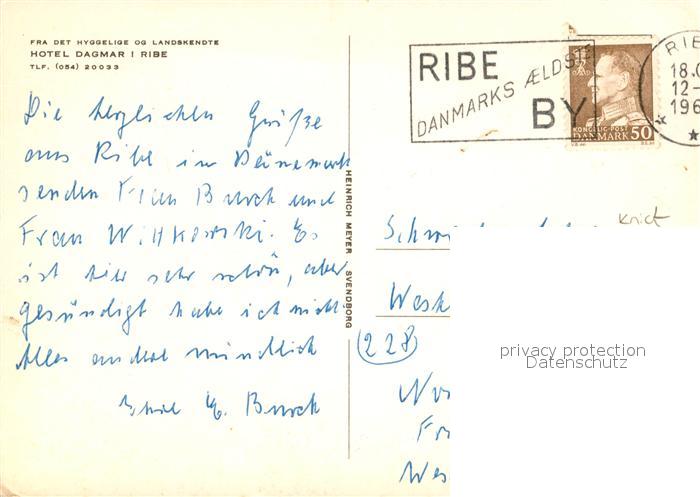 FRA DET HYGGELIGE OG LANDSKENDTE
HOTEL DAGMAR I RIBE
TLF. (054) 20033
Die herzlichen Grüße
aus Ribe in Dänemark
senden Frau Burck und
Frau Wittkowski. Es
ist hier sehr schön, aber
gesündigt habe ich nicht
Alles andere mündlich
E. Burck
HEINRICH MEYER SVENDBORG
RIBE
DANMARKS ÆLDSTE
BY
KONGELIG POST
DANMARK 50
RIB
18.0
12-
196
knick
Schw
West
(228)
Wes
privacy protection
Datenschutz